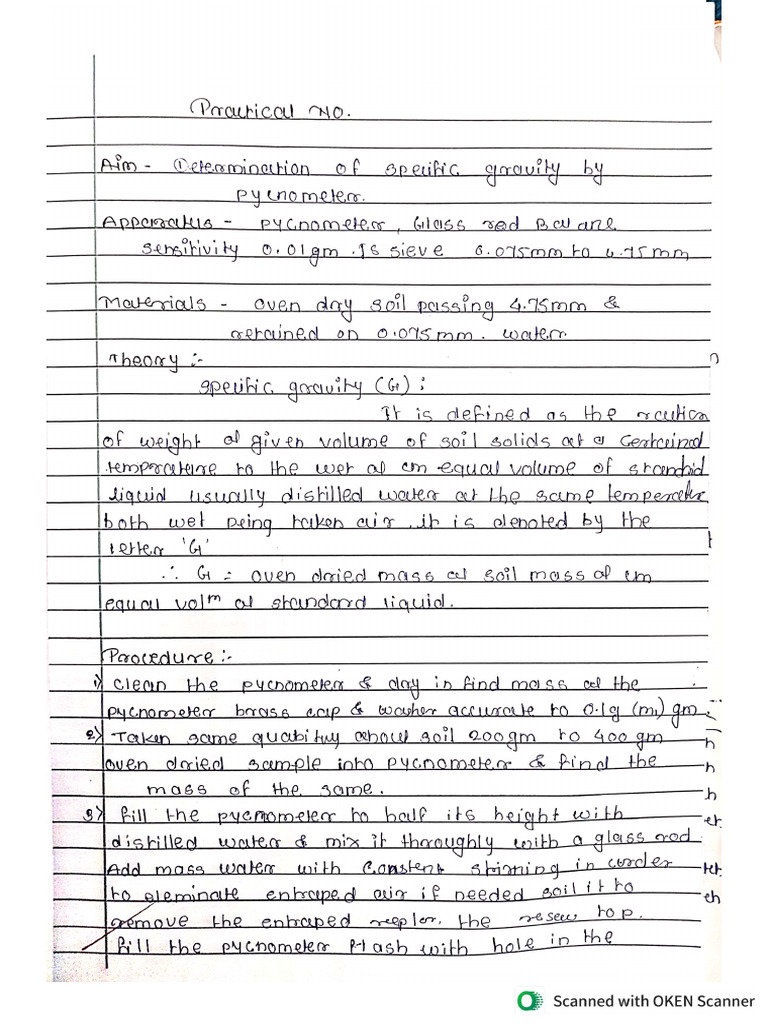 Practical No.
Aim - Determination of specific gravity by
pycnometer.
Apparatus - Pycnometer, Glass rod Balane
sensitivity 0.01gm. Is sieve 0.075mm to 4.75mm
Materials - oven day soil passing 4.75mm &
retained on 0.075mm. water.
Theory :-
specific gravity (G) :
It is defined as the
of weight of given volume of soil solids at a
temprature to the wet of equal volume of
liquid usually distilled water at the same
both wet being taken air. it is denoted by the
letter 'G'
∴ G = oven dried mass of soil mass of
equal volm of standard liquid.
Procedure :-
1) clean the pycnometer & day in find mass of the
pycnometer brass cap & washer accurate to 0.1g (m1) gm.
2) Taken same about soil 200gm to 400gm
oven dried sample into pycnometer & find the
mass of the same.
3) fill the pycnometer to half its height with
distilled water & mix it throughly with a glass rod.
Add mass water with constent stirring in
to eleminate entraped air if needed soil it to
remove the entraped the top.
fill the pycnometer with hole in the
Scanned with OKEN Scanner